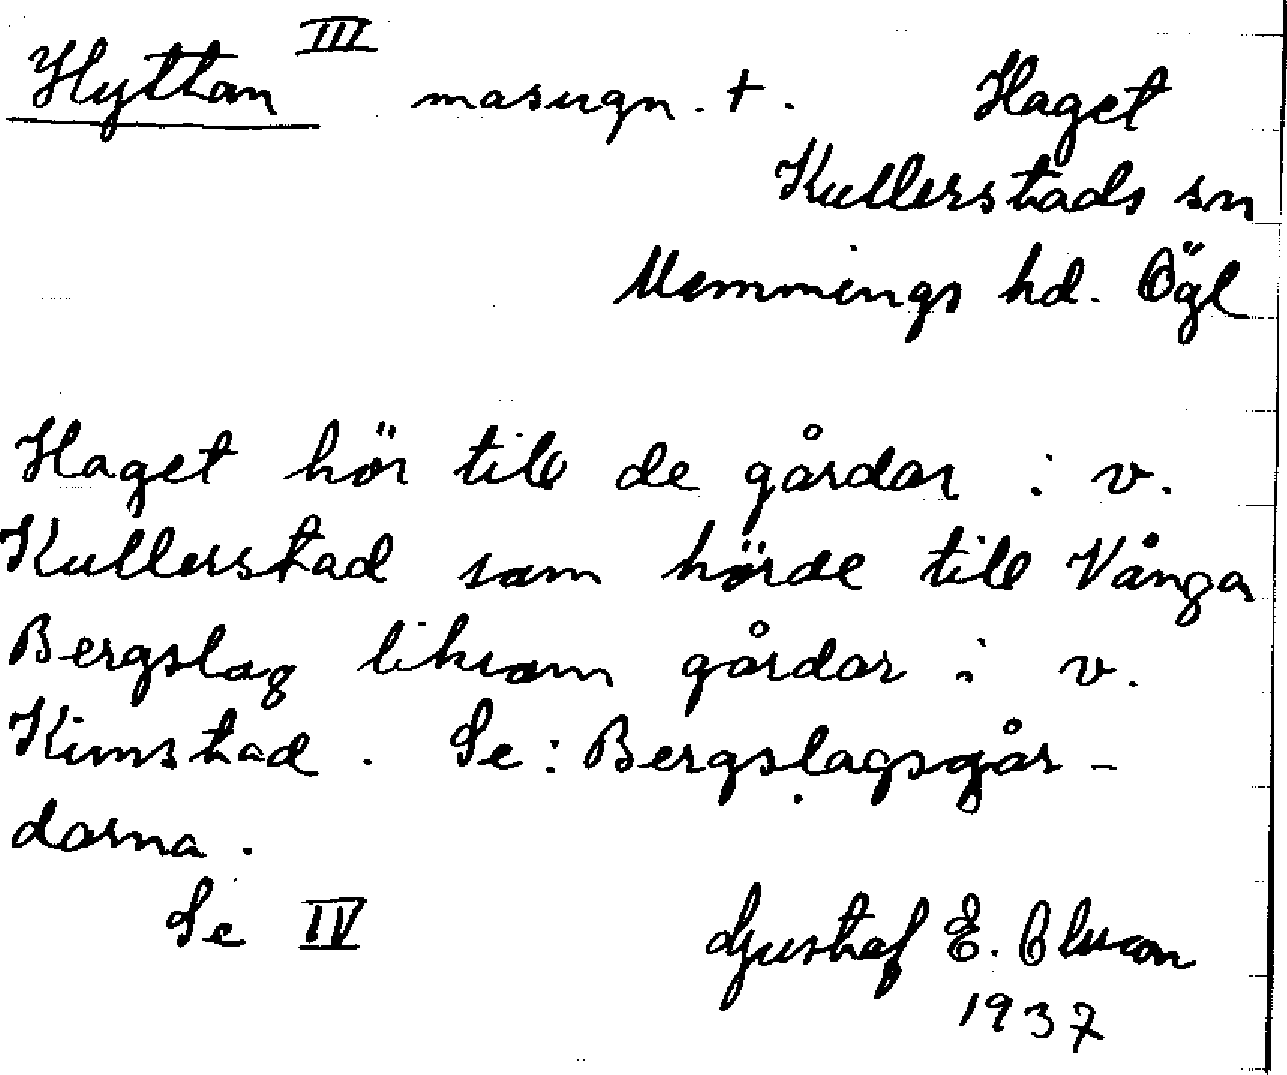 Hyttan III masugn. +. Haget
Kullerstads sn
Memmings hd. Ögl
Haget hör till de gårdar i v.
Kullerstad som hörde till Vånga
Bergslag liksom gårdar i v.
Kimstad. Se: Bergslagsgår-
darna.
Se IV Gustaf E. Olsson
1937